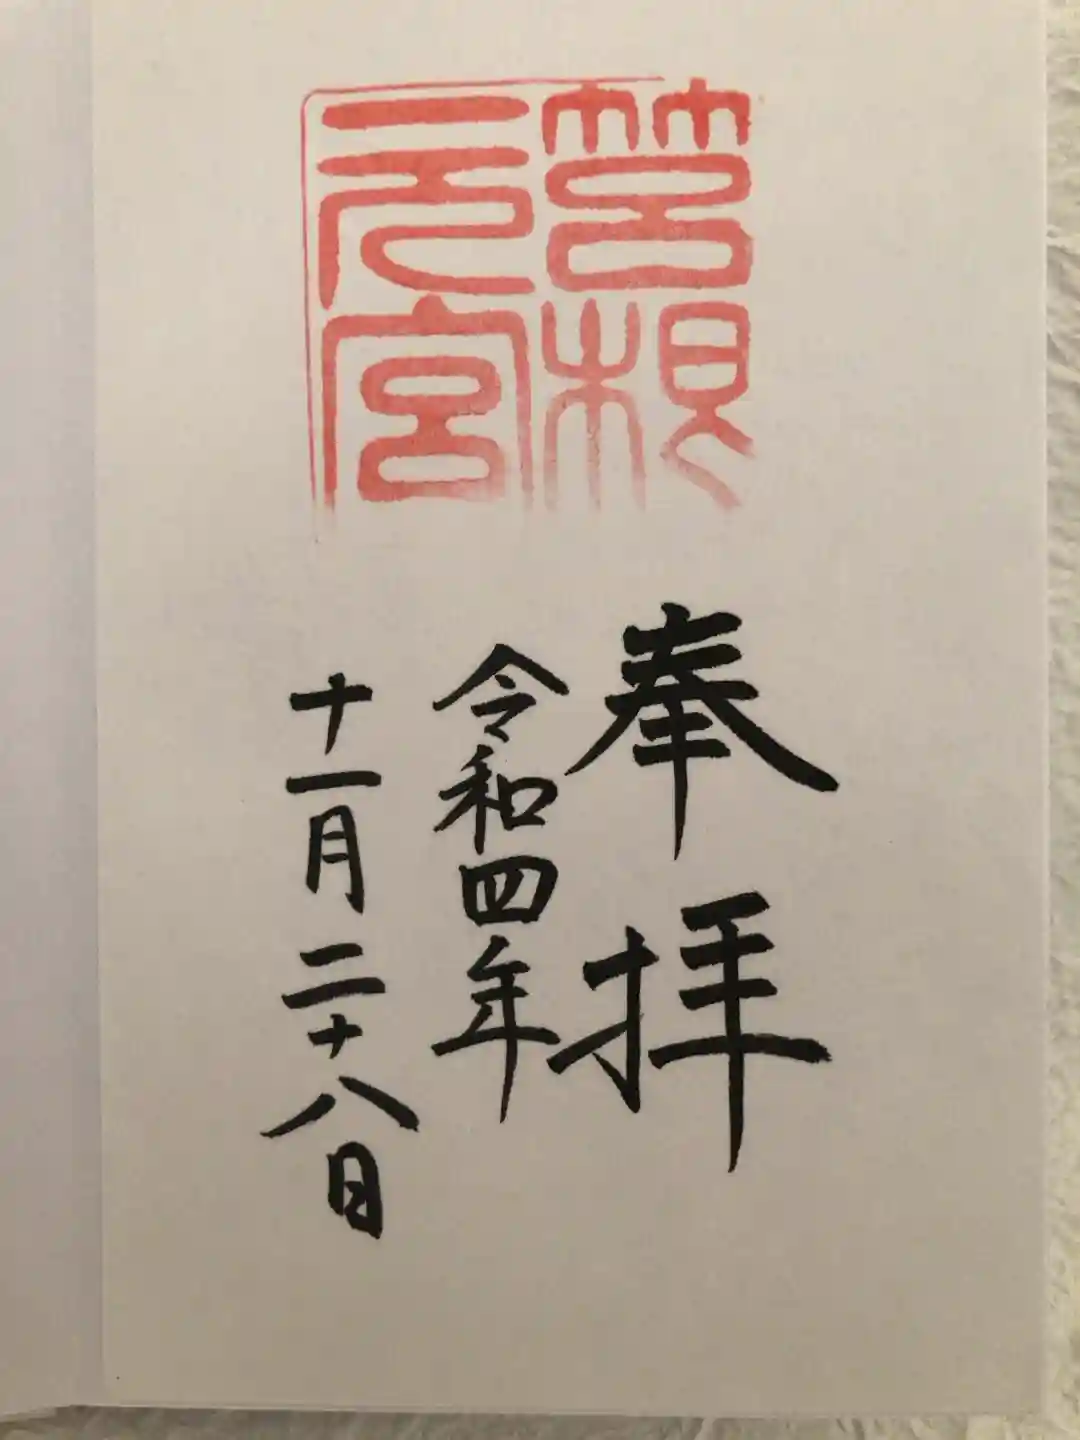 筥根
元宮
奉拝
令和四年
十一月二十八日